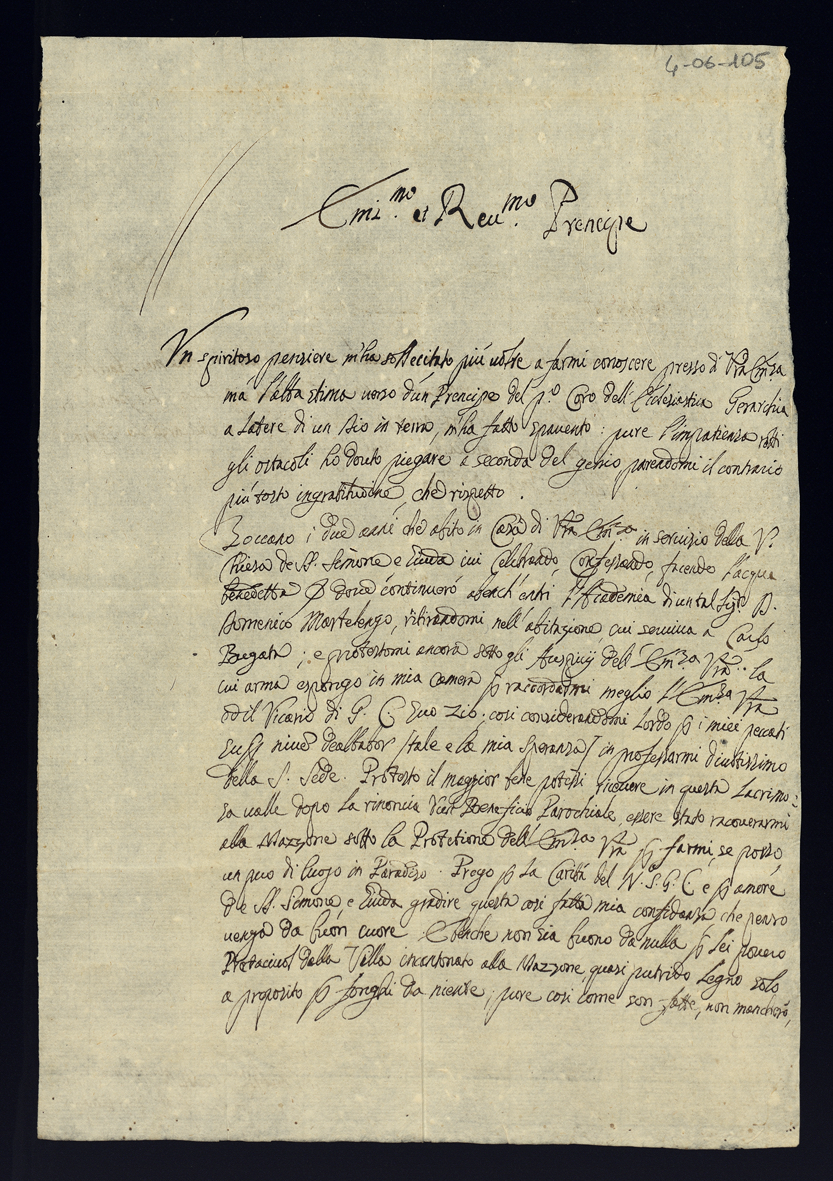 4-06-105
Emi.mo et Reu.mo Prencipe
Vn spiritoso pensiere m'ha sollecitato più uolte a farmi conoscere presso di Vra Em.za
mà l'alta stima uerso d'un Prencipe del p.o Coro dell'Ecclesiastica Gerarchia
a Latere di un Dio in terra, m'ha fatto spauento: pure l'impatienza rotti
gli ostacoli hò douto piegare a seconda del genio parendomi il contrario
più tosto ingratitudine, che rispetto.
Toccano i due anni che abito in Casa di Vra Em.za in seruizio della V.
Chiesa de SS. Simone e Giuda iui Celebrando, Confessando, facendo l'acqua
benedetta doue continuerò abench'entri l'Academia di un tal Sig.r D.
Domenico Martelengo, ritirandomi nell'abitazione cui seruiua a Carlo
Bugata; e protestomi ancora sotto gli Auspicij dell'Em.za Vra. la
cui arma espongo in mia Camera p raccordarmi meglio l'Em.za Vra
od il Vicario di G. C. suo Zio; così considerandomi Lordo p i miei peccati
sup niuem dealbabor /tale e la mia speranza/ in professarmi diuotissimo
della S. Sede. Protesto il maggior bene potessi riceuere in questa Lacrimo=
sa ualle dopo la rinoncia Benefitio Parochiale, essere stato racouerarmi
alla Mazzone sotto la Protetione dell'Em.za Vra p farmi, se posso,
un puo di luogo in Paradiso. Prego p La Carità del N. S. G. C. e p amore
de SS. Simone e Giuda gradire questa così fatta mia confidenza che penso
uenga da buon cuore. E benche non sia buono da nulla p Lei pouero
dalla Valle incantonato alla Mazzone, quasi putrido Legno solo
a proposito p fonghi da niente; pure così come son fatto, non mancherò,